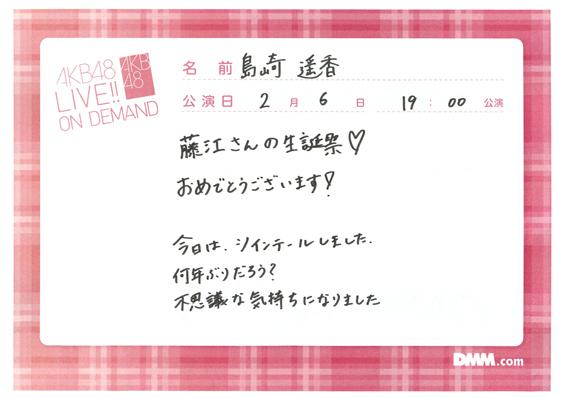 AKB48
LIVE!!
ON DEMAND
AKB
48
名 前 島崎 遥香
公演日 2 月 6 日 19 : 00 公演
藤江さんの生誕祭♡
おめでとうございます!
今日は、ツインテールしました.
何年ぶりだろう?
不思議な気持ちになりました
DMM.com